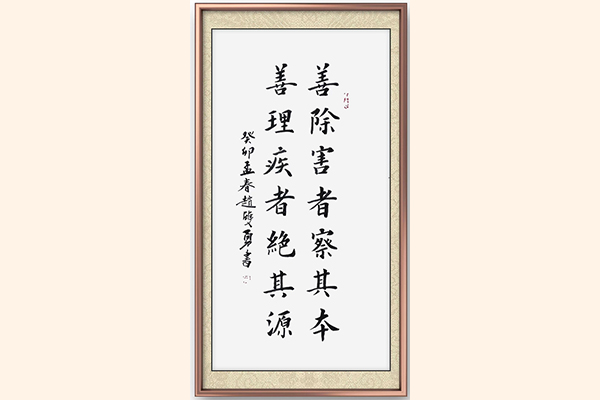 善除害者察其本
善理疾者絶其源
癸卯孟春趙
勇書